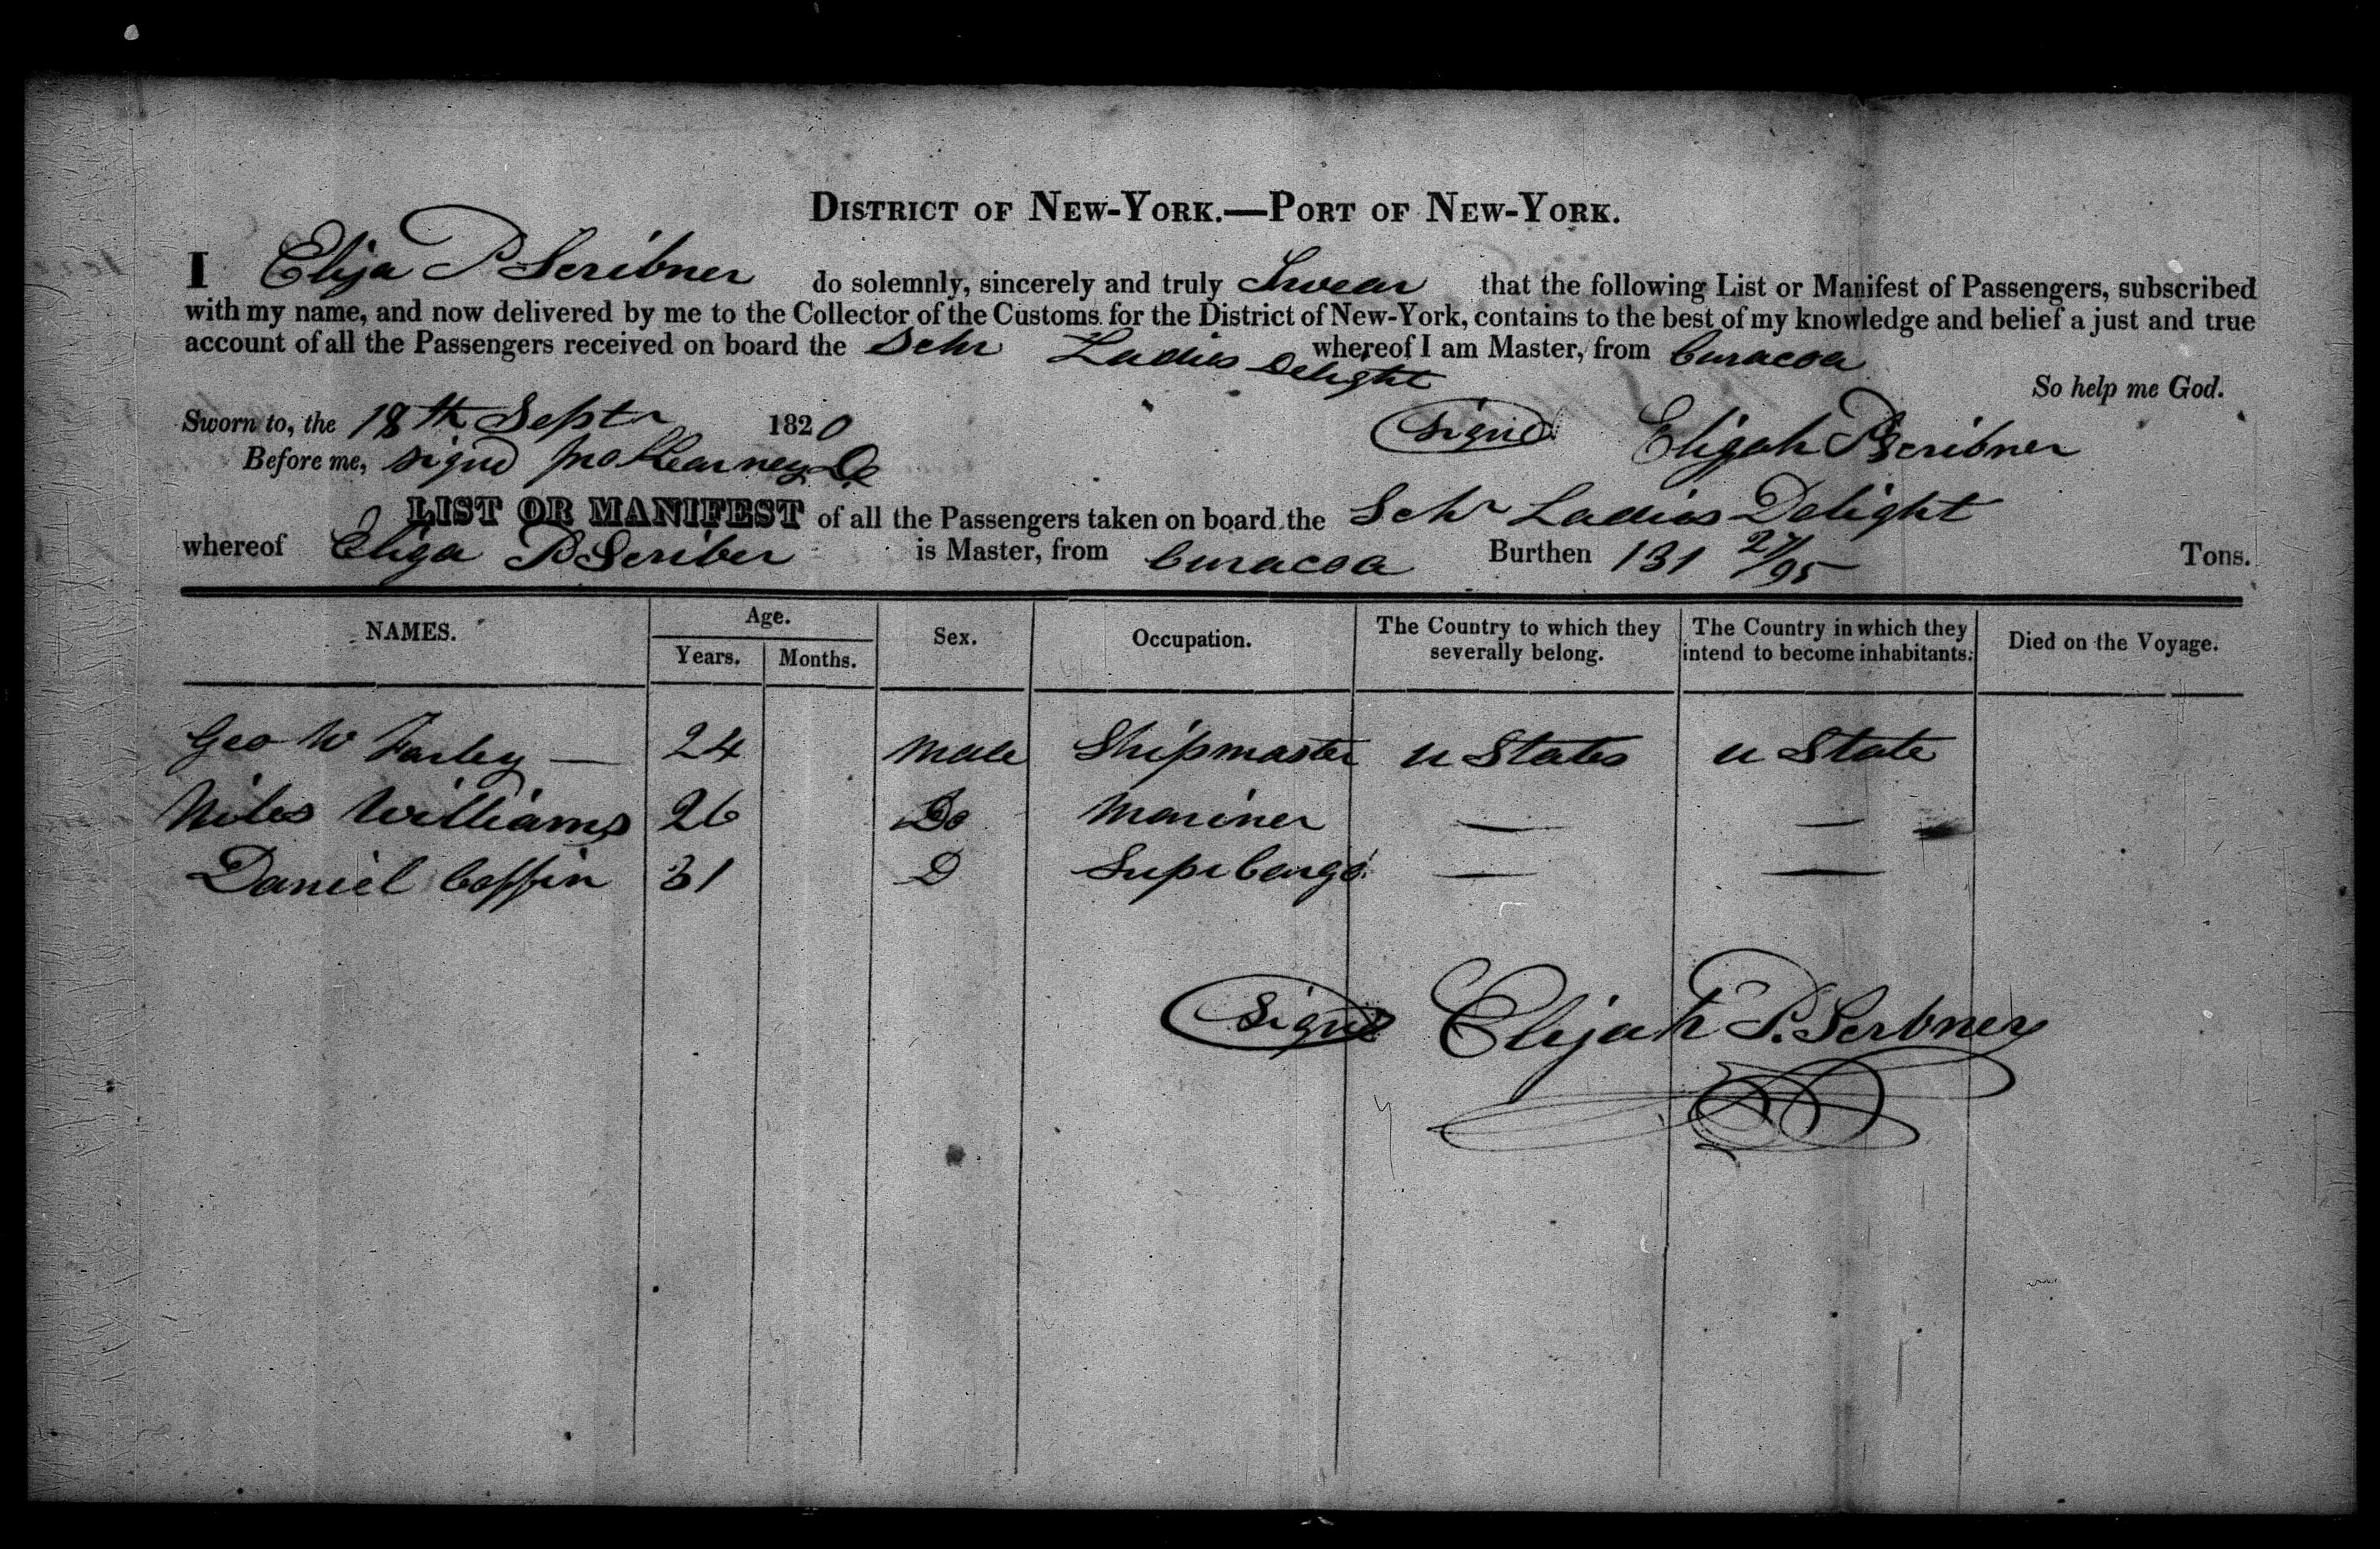 DISTRICT OF NEW-YORK.—PORT OF NEW-YORK.
I Elija P Scribner do solemnly, sincerely and truly Swear that the following List or Manifest of Passengers, subscribed
with my name, and now delivered by me to the Collector of the Customs for the District of New-York, contains to the best of my knowledge and belief a just and true
account of all the Passengers received on board the Schr Ladies Delight whereof I am Master, from Curacoa
So help me God.
Sworn to, the 18th Septr 1820 Signd Elijah P Scribner
Before me, signd Jno Kearney
LIST OR MANIFEST of all the Passengers taken on board the Schr Ladies Delight
whereof Eliga P Scriber is Master, from Curacoa Burthen 131 27/95 Tons.
NAMES. Age. Years. Months. Sex. Occupation. The Country to which they severally belong. The Country in which they intend to become inhabitants. Died on the Voyage.
Geo W Farley — 24 Male Shipmaster U States U State
Niles Williams 26 Do Mariner — —
Daniel Coffin 31 D Supe Cargo — —
Signd Elijah P. Scrbner